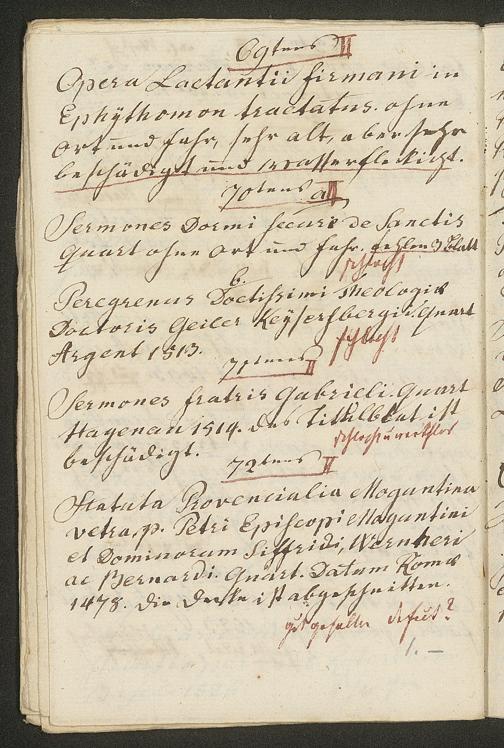 69tens II
Opera Lactantii firmani in
Ephÿthomon tractatus. ohne
Ort und Jahr, sehr alt, aber sehr
beschädigt und wasserfleckigt.
70tens a II
Sermones Dormi secure de Sanctis
Quart ohne Ort und Jahr. fehlen 3 Blatt
schlecht
b.
Peregrenus Doctissimi Theologiæ
Doctoris Geiler Keÿsersbergii. Quart
Argent 1513.
schlecht
71tens II
Sermones fratris Gabrieli. Quart
Hagenau 1514. das Titulblat ist
beschädigt.
schlecht u werthlos
72tens II
Statuta Provencialia Moguntina
vetra, p. Petri Episcopi Maguntini
et Dominorum Siffridi, Wernheri
ac Bernardi. Quart. Datum Romæ
1478. die Decke ist abgeschnitten.
gut gehalten defect?
1. —